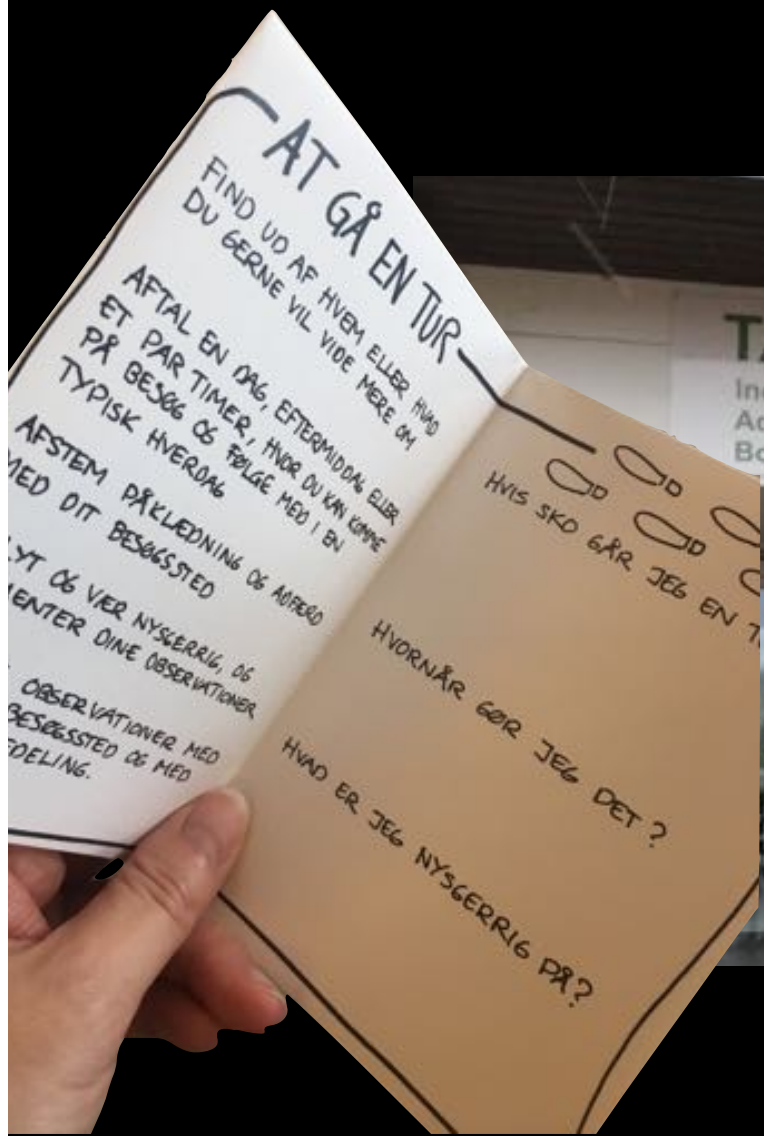 AT GÅ EN TUR
FIND UD AF HVEM ELLER HVAD
DU GERNE VIL VIDE MERE OM
AFTAL EN DAG, EFTERMIDDAG ELLER
ET PAR TIMER, HVOR DU KAN KOMME
PÅ BESØG OG FØLGE MED I EN
TYPISK HVERDAG
AFSTEM PÅKLÆDNING OG ADFÆRD
MED DIT BESØGSSTED
OG VÆR NYSGERRIG, OG
DINE OBSERVATIONER
OBSERVATIONER MED
BESØGSSTED OG MED
HVIS SKO GÅR JEG EN
HVORNÅR GØR JEG DET?
HVAD ER JEG NYSGERRIG PÅ?